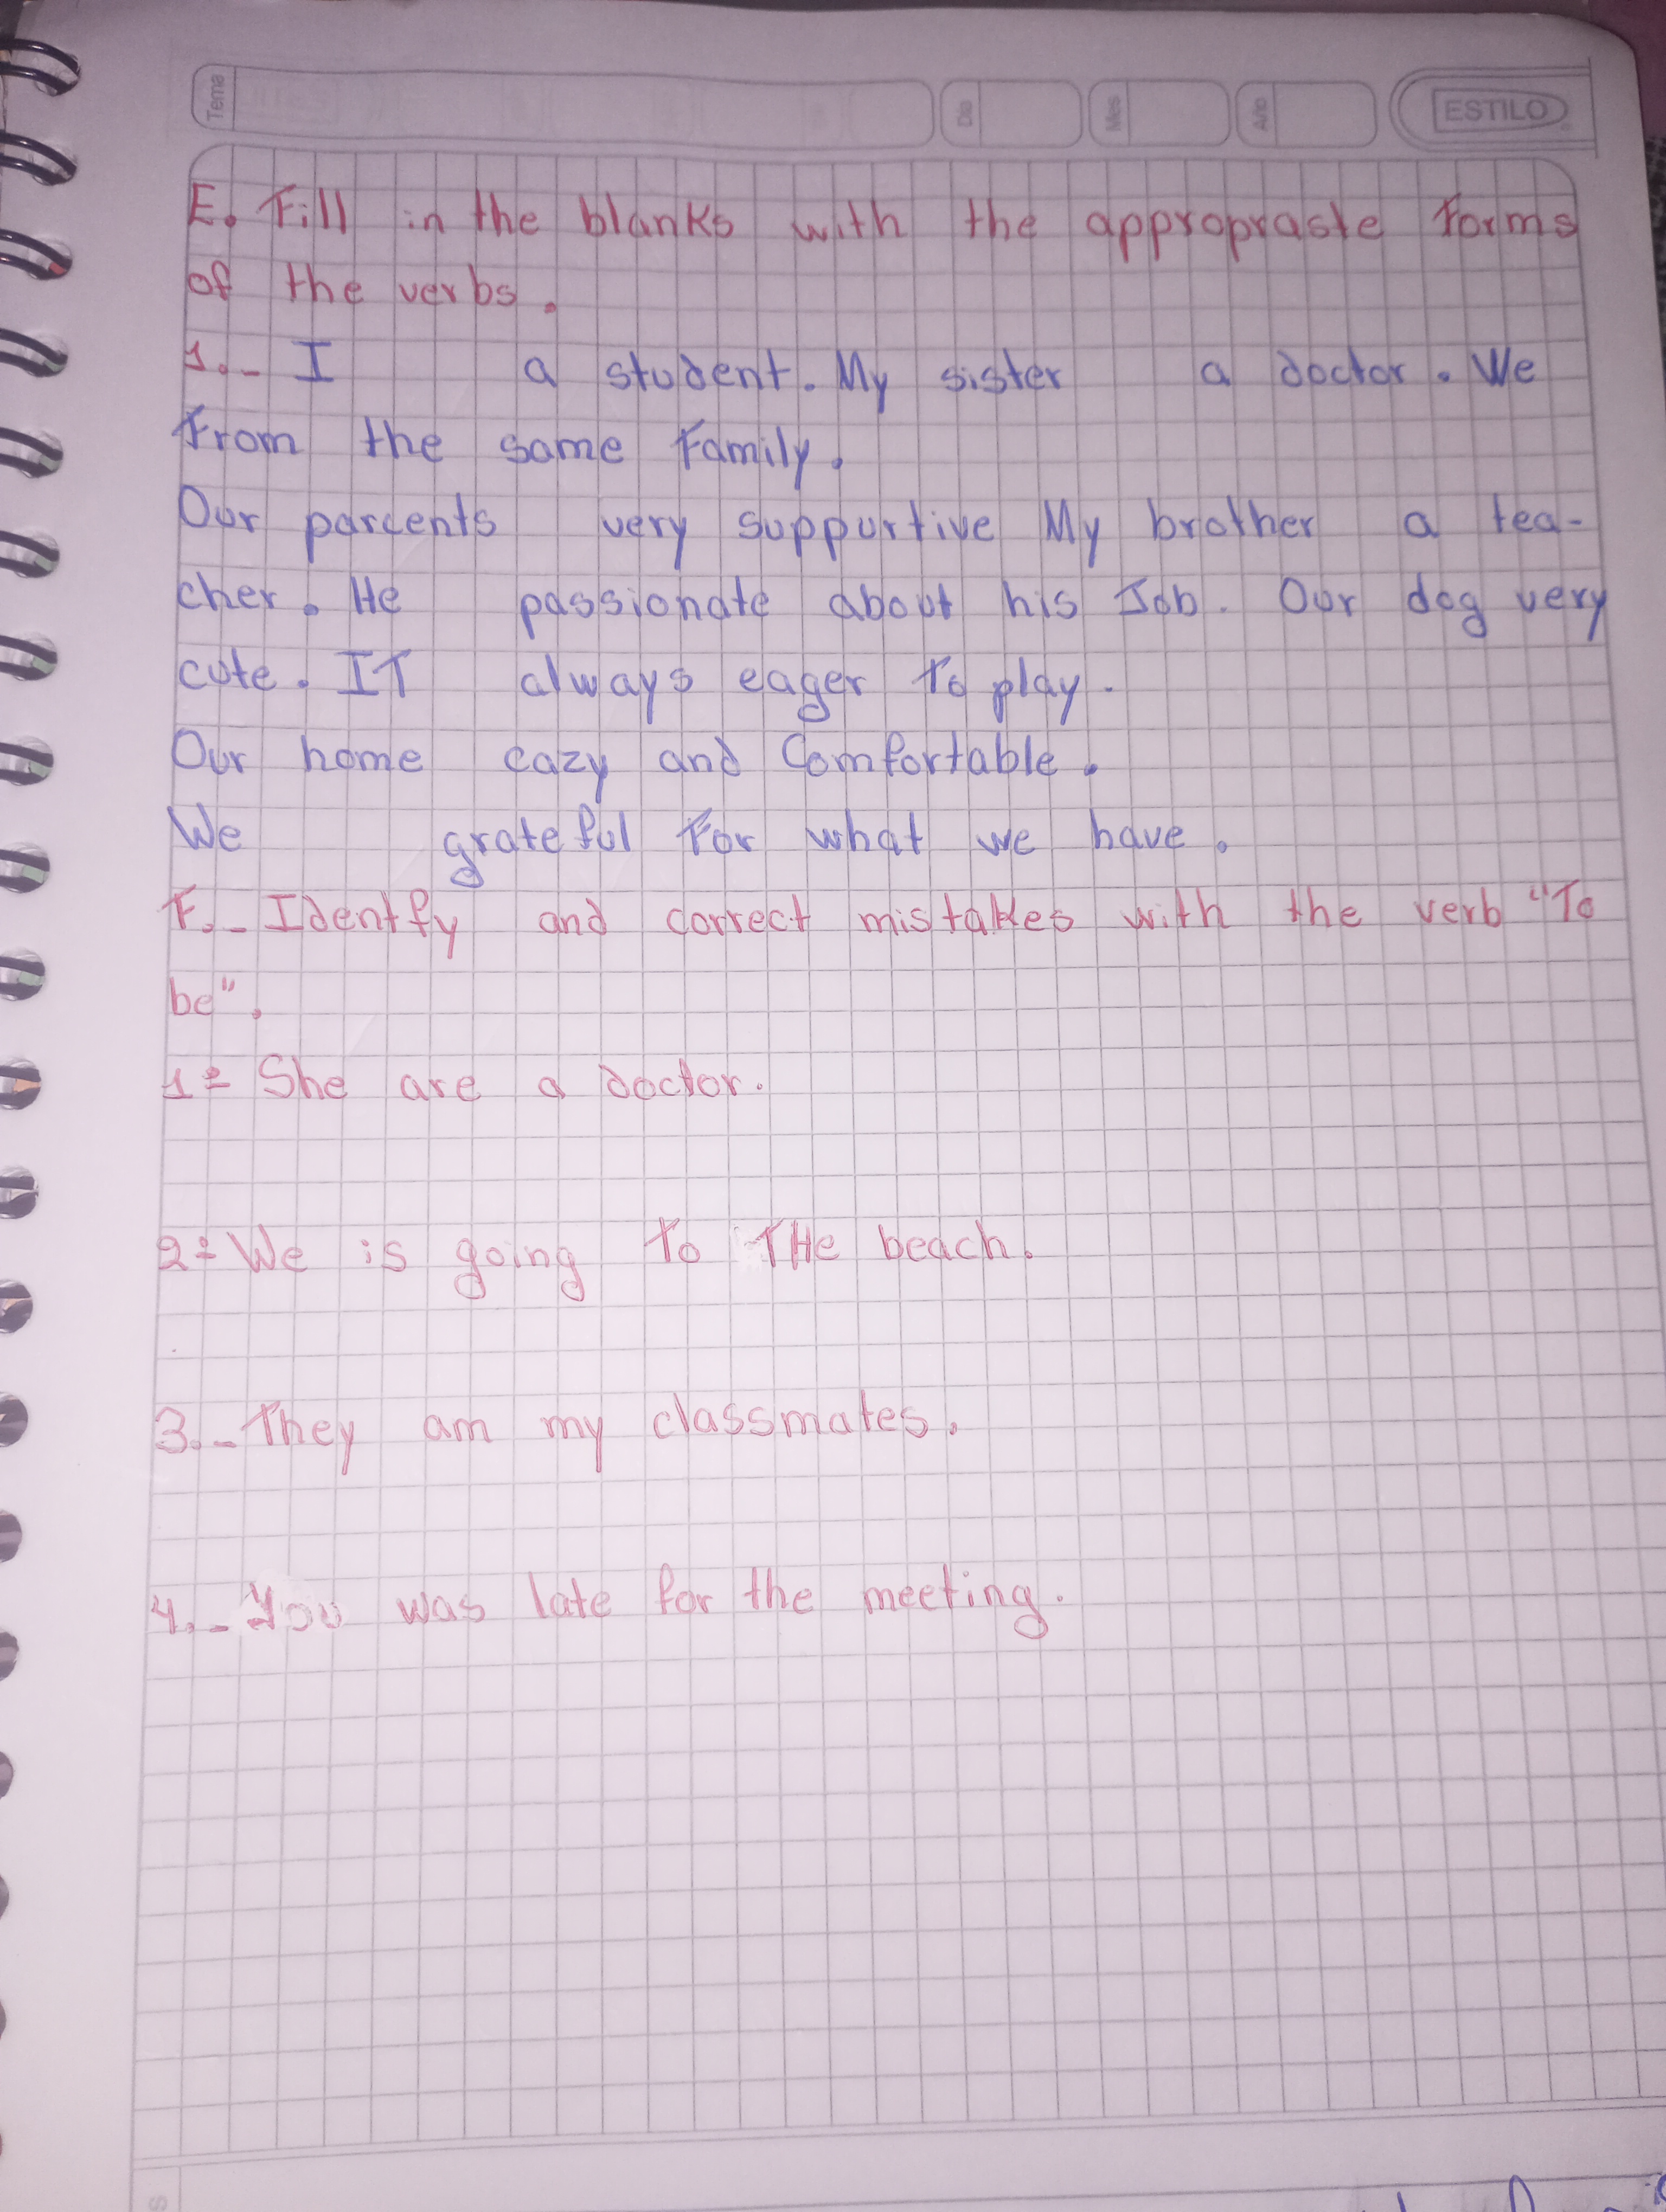 Tema
Dia
Mes
Año
ESTILO
E. Fill in the blanks with the appropraste forms
of the verbs.
1.- I a student. My sister a doctor. We
from the same family.
Our parcents very suppurtive My brother a tea-
cher. He passionate about his Job. Our dog very
cute. IT always eager to play.
Our home cazy and Comfortable.
We grateful For what we have.
F.- Identfy and correct mistakes with the verb "To
be".
1= She are a doctor.
2= We is going To THe beach.
3.- They am my classmates.
4.- You was late for the meeting.